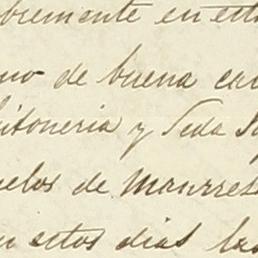 bremente en est
no de buena ca
itoneria y Seda
uelos de Manrres
n estos dias